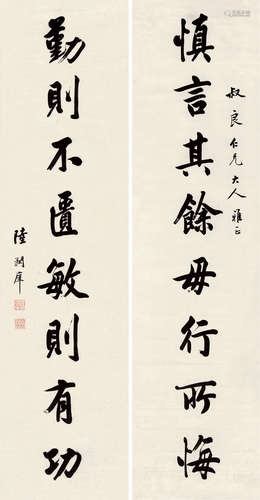 叔良仁兄大人雅正
慎言其餘毋行所悔
勤則不匱敏則有功
陸潤庠